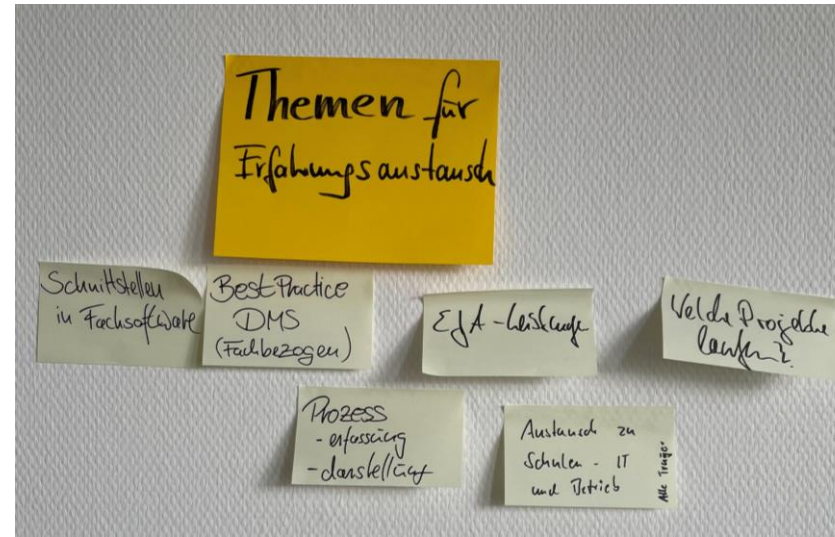 Themen für
Erfahrungsaustausch
Schnittstellen
in Fachsoftware
Best Practice
DMS
(Fachbezogen)
EfA-Leistungen
Welche Projekte
laufen?
Prozess
- erfassung
- darstellung
Austausch zu
Schulen - IT
und Betrieb
Alle Träger